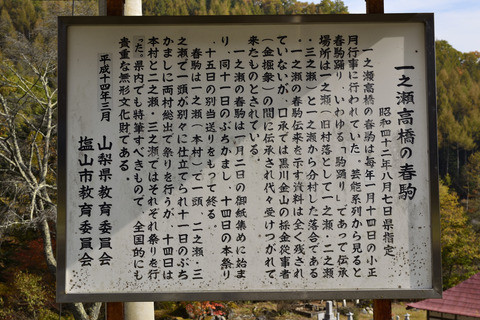 一之瀬高橋の春駒
昭和四十二年八月七日県指定
一之瀬高橋の春駒は毎年一月十四日の小正
月行事に行われていた。芸能系列から見ると
春駒踊り、いわゆる「駒踊り」であって伝承
場所は一之瀬（旧村落として一之瀬、二之瀬
、三之瀬）と一之瀬から分村した落合である
。一之瀬の春駒伝来を示す資料は全く残され
ていないが、口承では黒川金山の採金従事者
（金掘衆）の間に伝承され代々受けつがれて
来たものとされている。
一之瀬の春駒は一月二日の御紙集めに始ま
り、同十一日のぶちかまし、十四日の本祭り
、十五日の別当送りをもって終る。
春駒は一之瀬（本村）で一頭、二之瀬、三
之瀬で一頭が別々に仕立てられ十一日のぶち
かましに両村総出で祭りを行うが、十四日は
本村と二之瀬・三之瀬ではそれぞれ祭りを行
った。県内でも特筆すべきもので、全国的にも
貴重な無形文化財である。
平成十四年三月
山梨県教育委員会
塩山市教育委員会